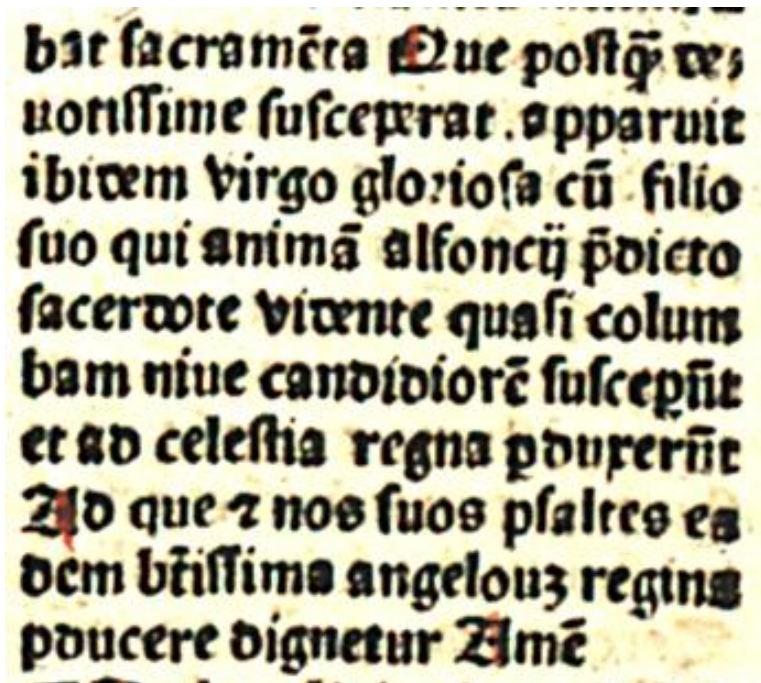 bat sacramēta Que postq̄ de⸗
uotissime susceperat . apparuit
ibidem virgo gloriosa cū filio
suo qui animā alfoncij p̄dicto
sacerdote vidente quasi colum
bam niue candidiorē susceper̄ūt
et ad celestia regna ꝑduxerūt
Ad que ⁊ nos suos psaltes ea
dem bt̄issima angelouꝫ regina
pducere dignetur Amē